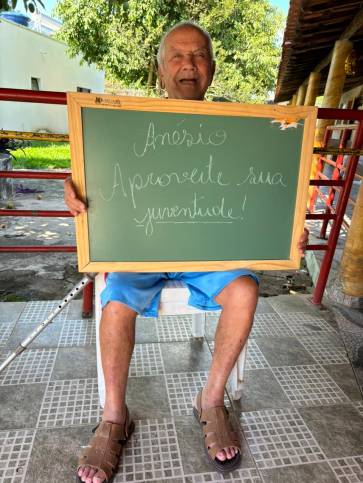 Anésio
Aproveite sua
juventude!